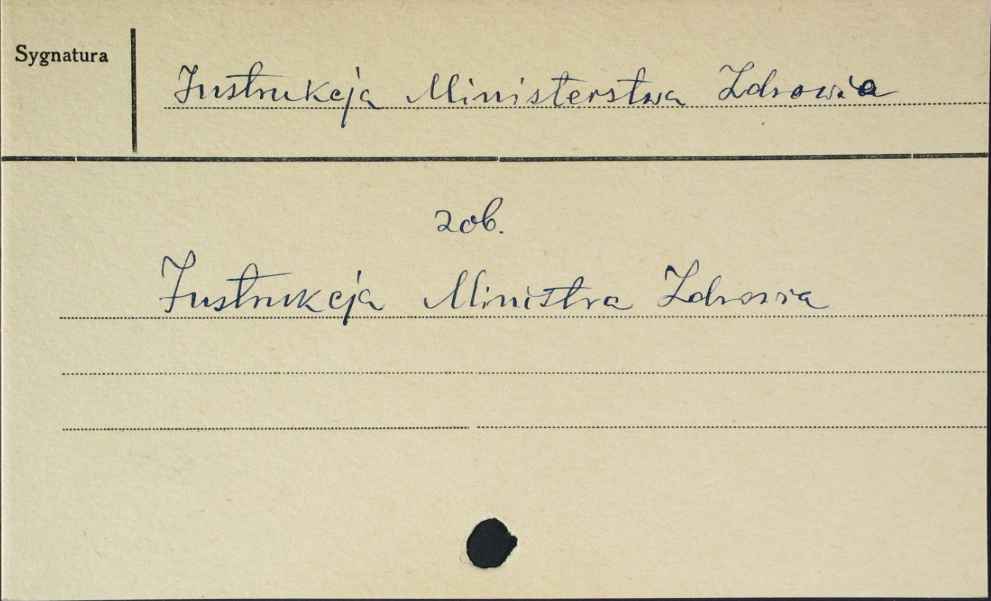 Sygnatura
Instrukcja Ministerstwa Zdrowia
zob.
Instrukcja Ministra Zdrowia